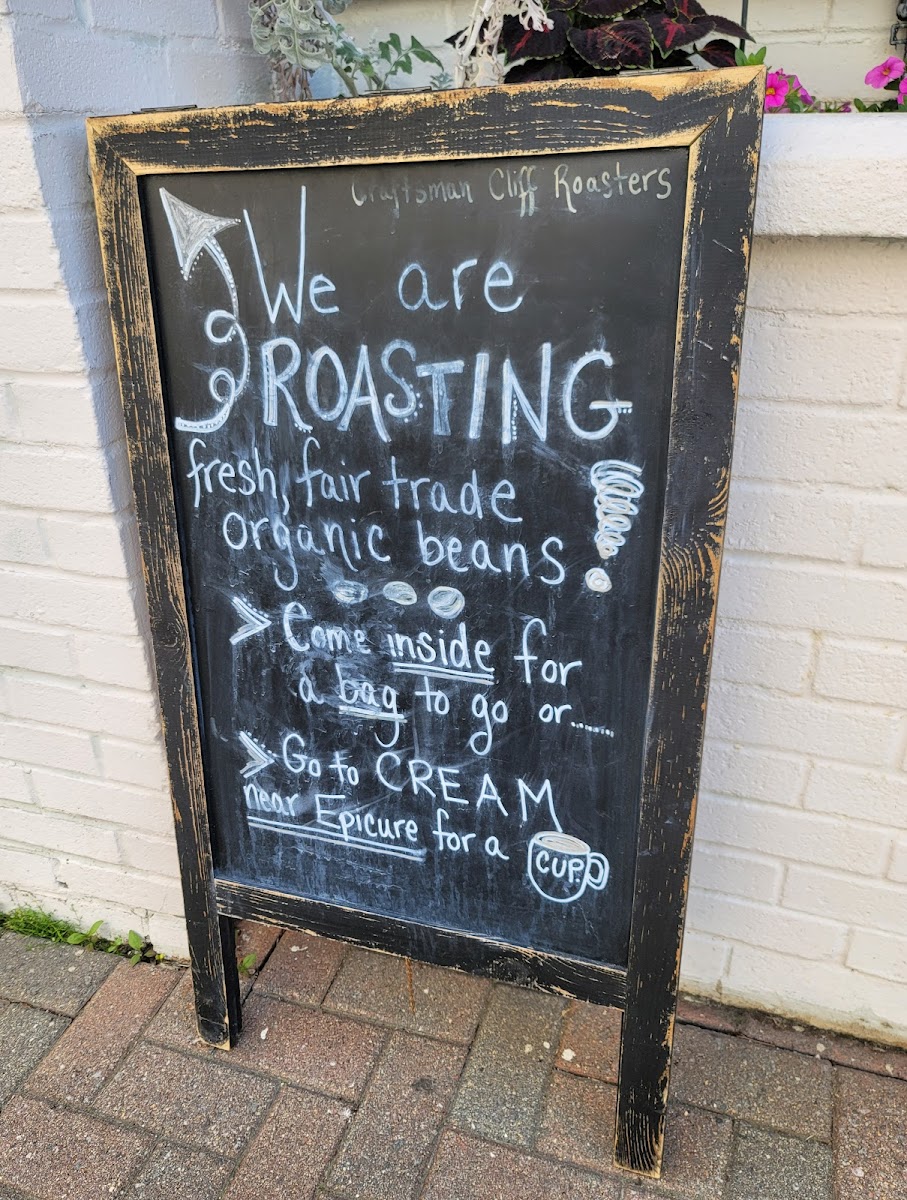 Craftsman Cliff Roasters
We are
ROASTING
fresh, fair trade
organic beans!
Come inside for
a bag to go or......
Go to CREAM
near Epicure for a
CUP.